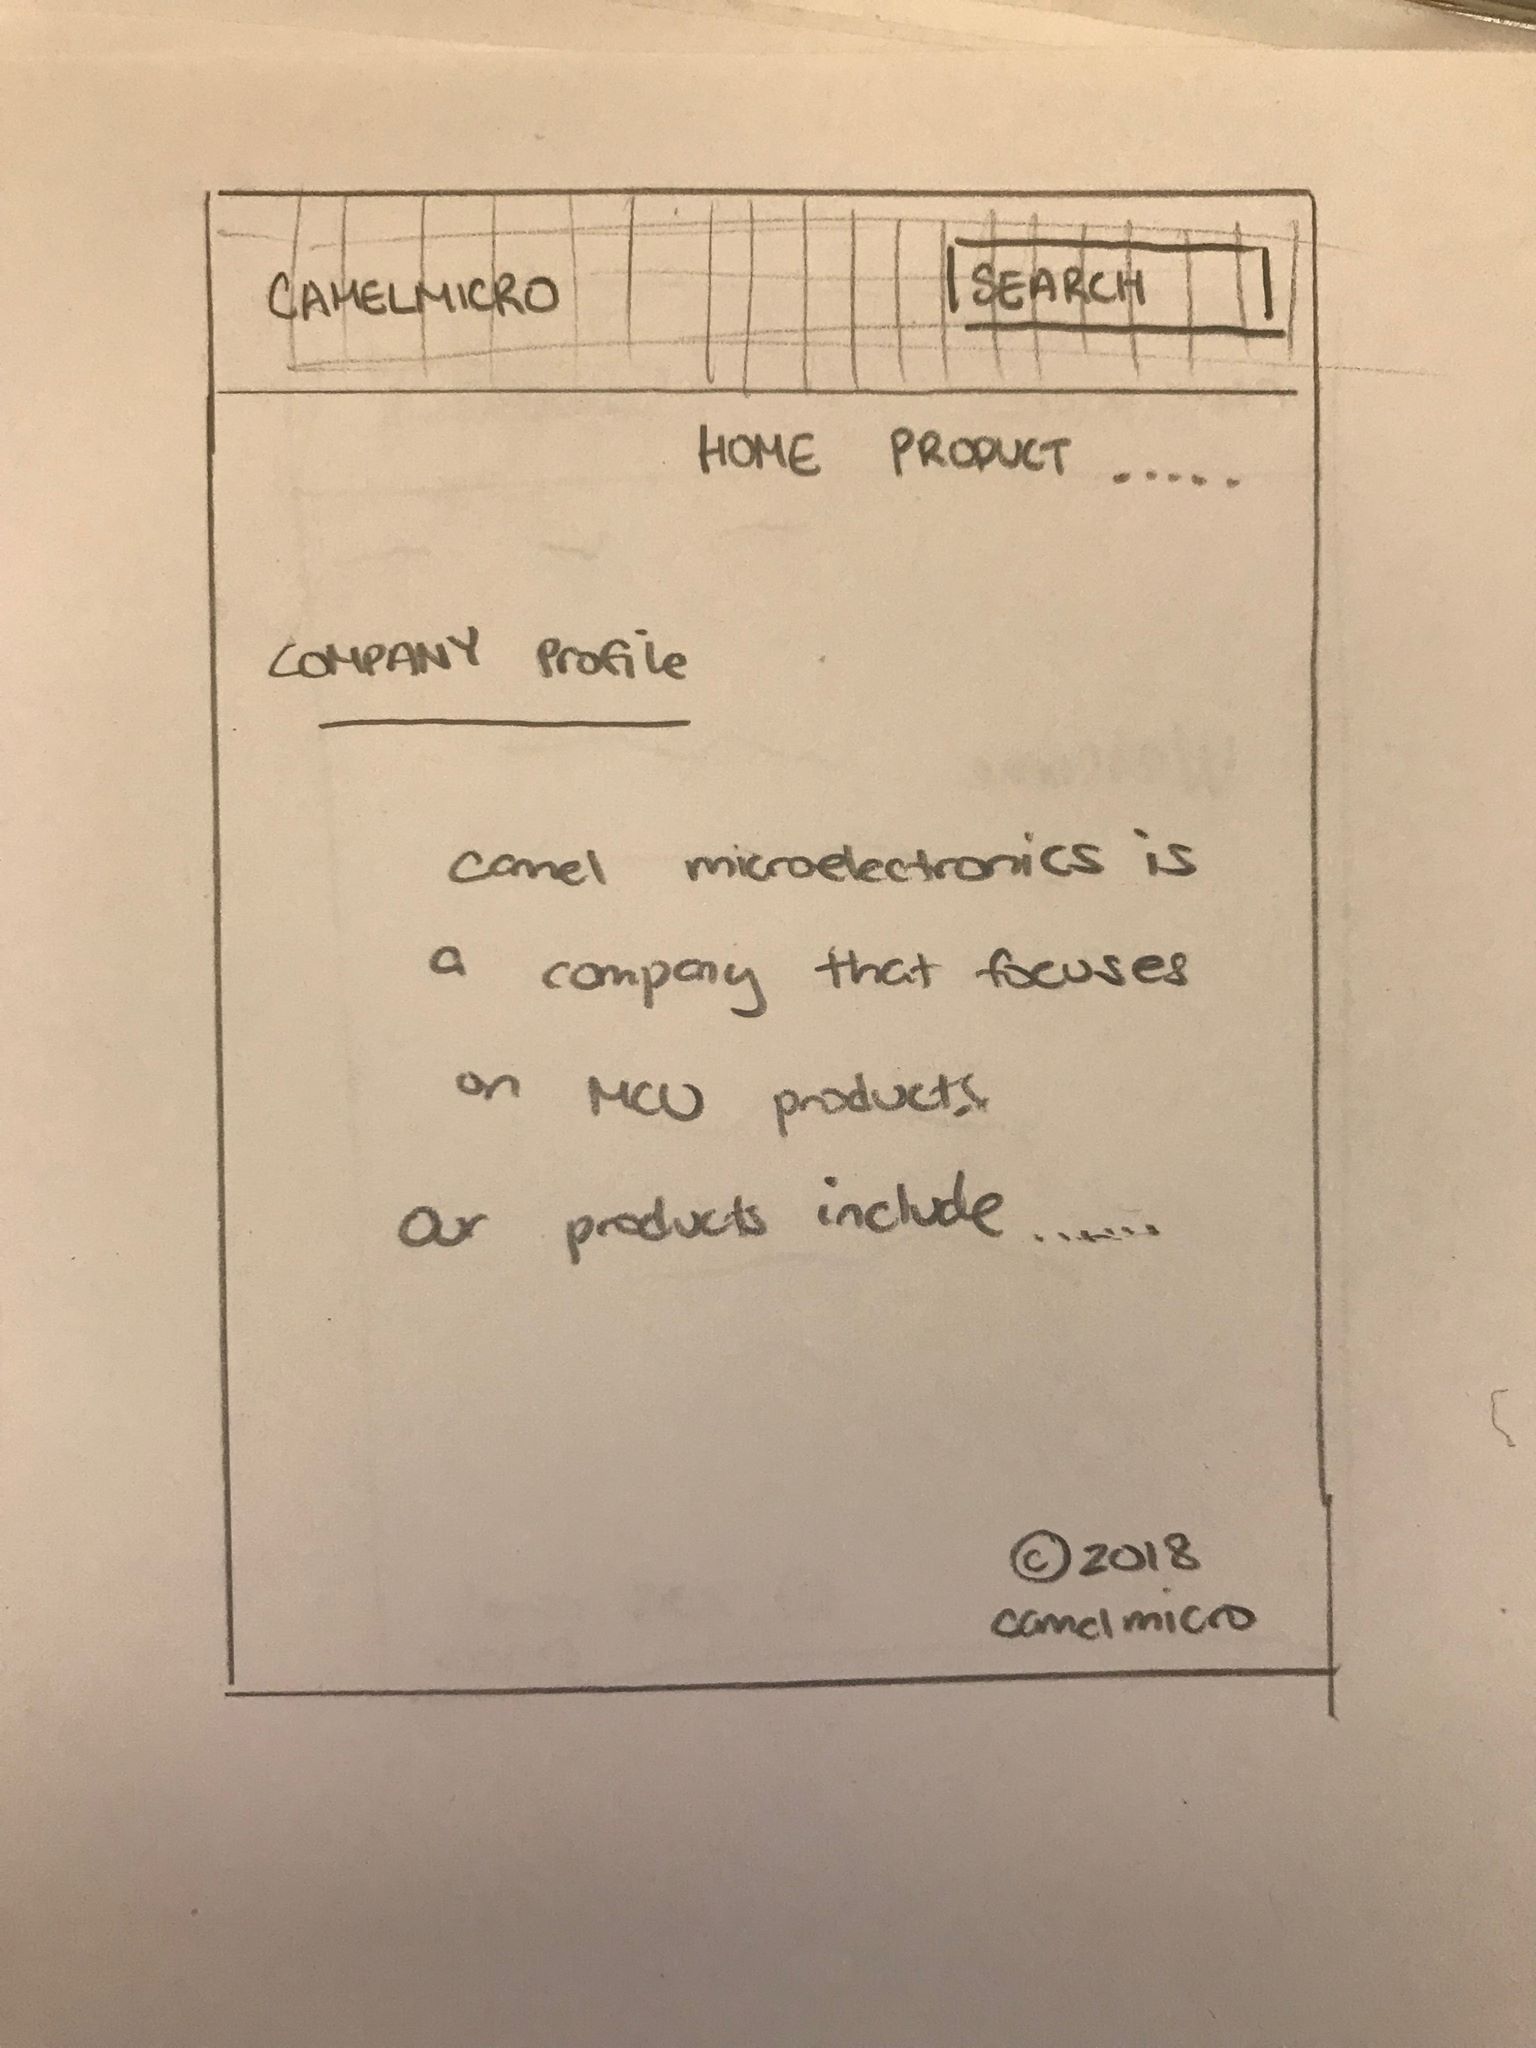 CAMELMICRO SEARCH
HOME PRODUCT .....
COMPANY Profile
camel microelectronics is
a company that focuses
on MCU products
Our products include ......
©2018
camelmicro